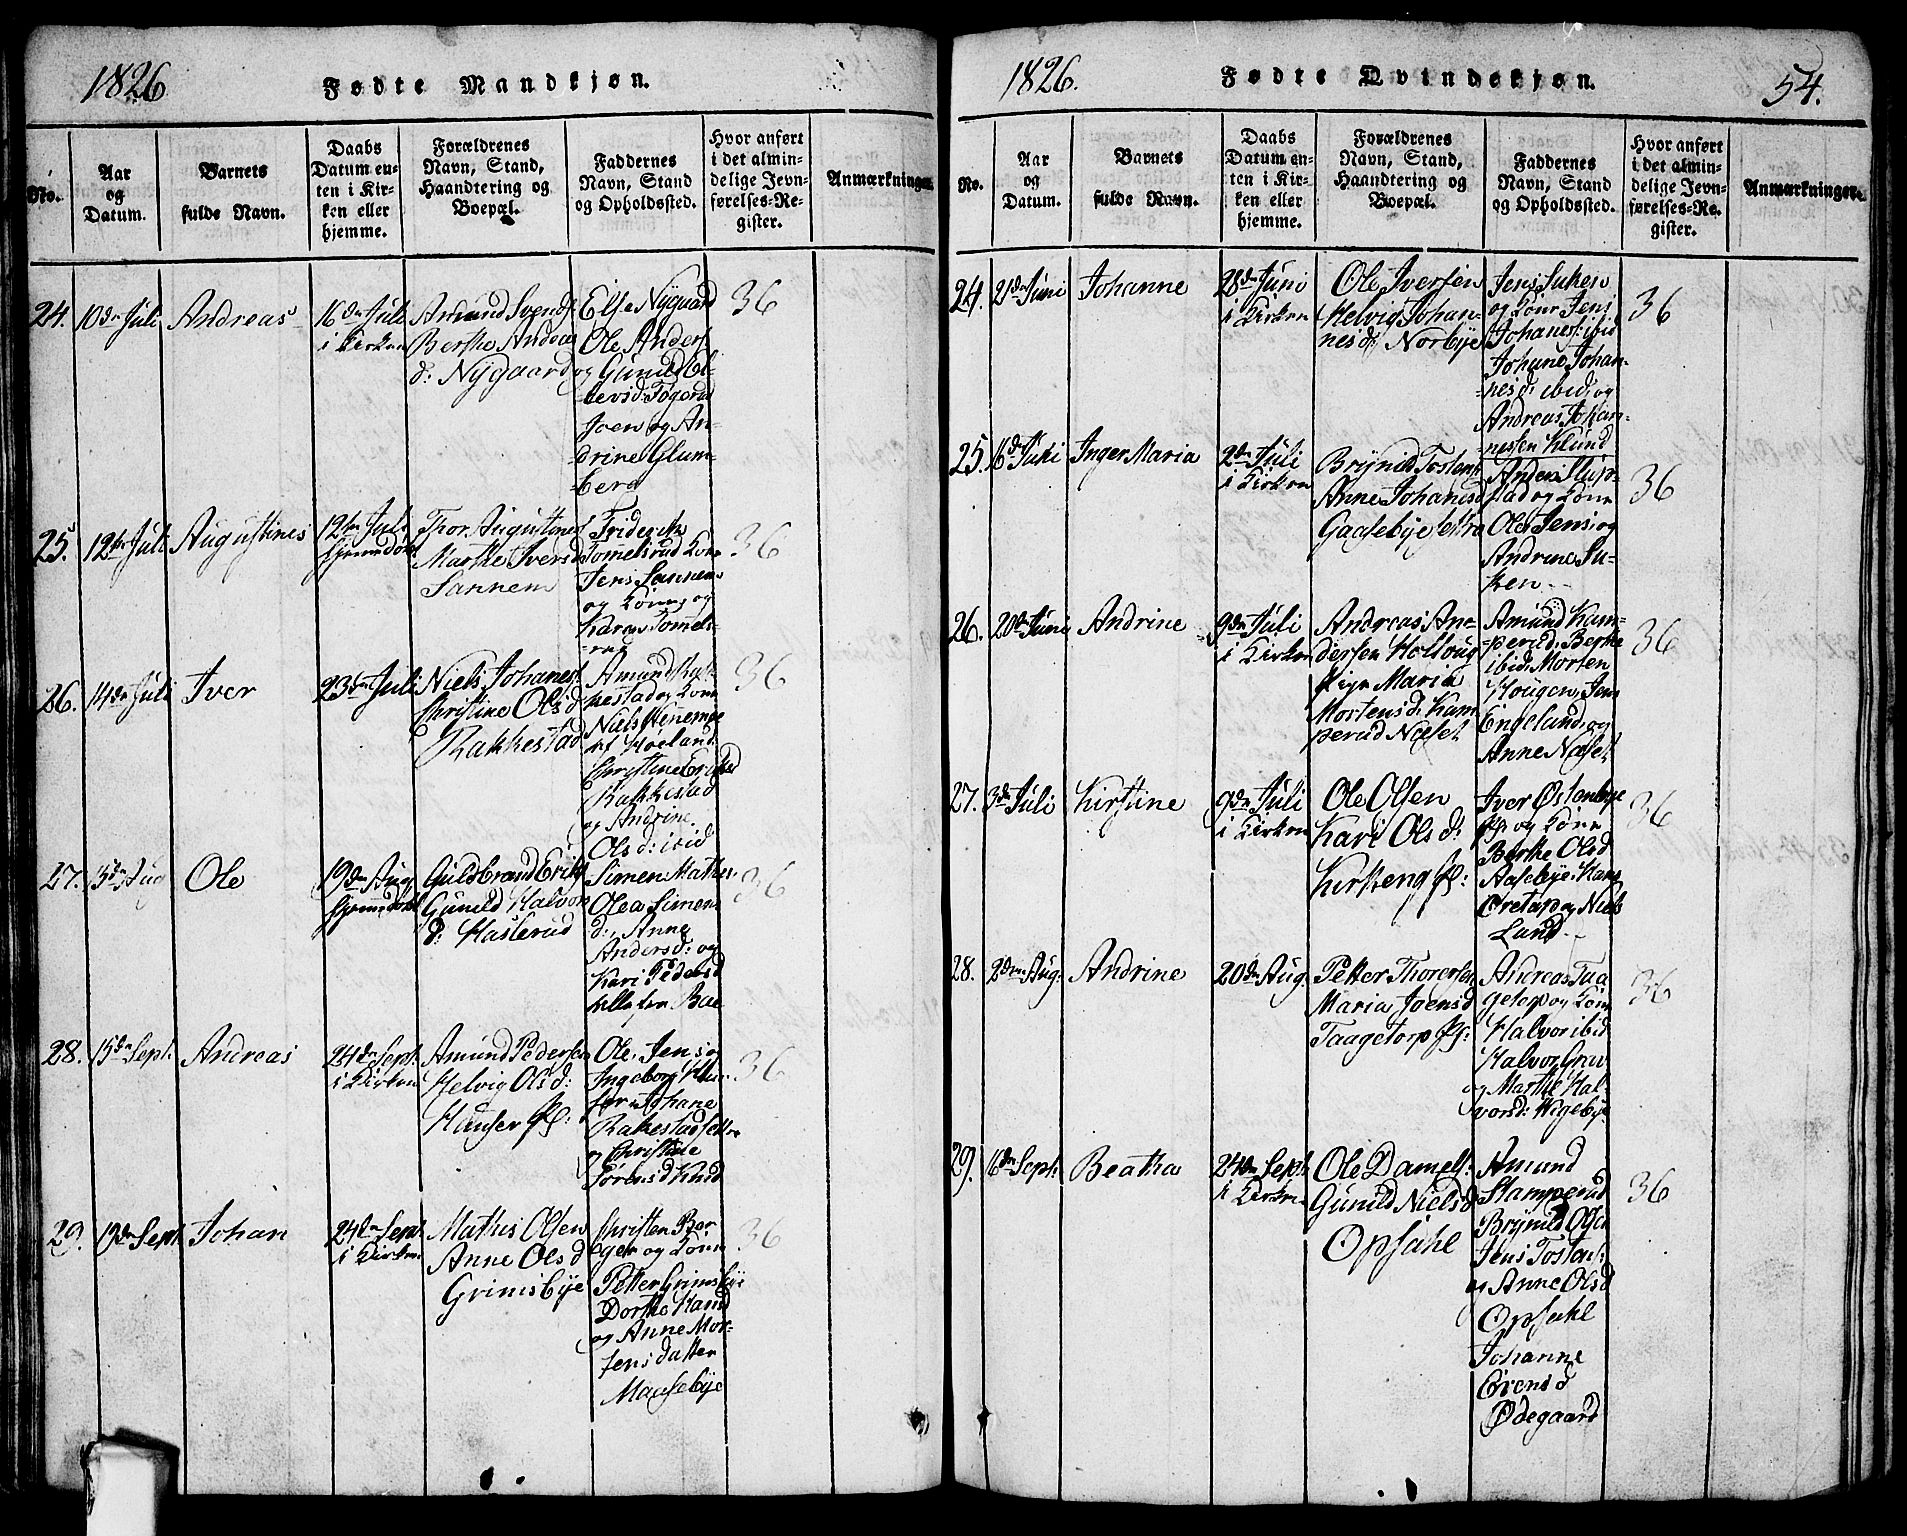 1826
Fødte Mandkjøn.
No.
Aar
og
Datum.
Barnets
fulde Navn.
Daabs
Datum en-
ten i Kir-
ken eller
hjemme.
Forældrenes
Navn, Stand,
Haandtering og
Boepæl.
Faddernes
Navn, Stand
og Opholdssted.
Hvor anført
i det almin-
delige Jevn-
førelses-Re-
gister.
Anmærkninger.
24.
10de Juli
Andreas
16de Juli
i Kirken
Amund Svends:
Berthe Andeas
d: Nygaard
Else Nygaard
Ole Anders:
og Gunild El-
levsd: Togerud
Joen og An-
drine Glum-
berg
36
25.
12te Juli
Augustines
12te Juli
hjemmedøbt
Thor Augustines:
Marthe Iversd
Sannem
Friderik
Tomelsrud Kone
Jens Sannem
og Kone, og
Karen Tomels-
rud
36
26.
14de Juli
Iver
23de Juli
Niels Johanes:
Christine Olsd
Rakkestad
Amund Rak-
kestad og Kone
Niels
Høeland
Christine Eriksd
Rakkestad
og Andrine
Olsd: ibid
36
27.
13de Aug
Ole
19de Aug
hjemmedøbt
Guldbrand Eriks:
Gunild Halvors
d: Haslerud
Simen Mathis:
Olea Simens
d:, Anne
Andersd: og
Kari Pedersd
alle fra Boe
36
28.
15de Sept:
Andreas
24de Sept:
i Kirken
Amund Pedersen
Helvig Olsd:
Hauser Pl:
Ole, Jens og
Ingeborg
Johane
Rakestadsettre
og Christine
Sørensd Knud
36
29.
19de Sept
Johan
24de Sept
i Kirken
Mathis Olsen
Anne Olsd
Grimsbye
Christen Ber
ger og Kone
Petter Grimsbye
Dorthe Kand
og Anne Mor-
tensdatter
Maasebye
36
1826.
Fødte Qvindekjøn.
54.
No.
Aar
og
Datum.
Barnets
fulde Navn.
Daabs
Datum en-
ten i Kir-
ken eller
hjemme.
Forældrenes
Navn, Stand,
Haandtering og
Boepæl.
Faddernes
Navn, Stand
og Opholdssted.
Hvor anført
i det almin-
delige Jevn-
førelses-Re-
gister.
Anmærkninger.
24.
21de Juni
Johanne
28de Juni
i Kirken
Ole Iversen
Helvig Johan-
nesd: Norbye
Jens Suken
og Kone Jens
Johanes: ibid
Johane Johan-
nesd: ibid, og
Andreas Johan-
nesen Klund
36
25.
16de Juni
Inger Maria
2de Juli
i Kirken
Brynild Tostens:
Anne Johanesd
Gaasebye settra
Anders Slup-
stad og Kone
Ole, Jens, og
Andrine Su-
ken
36
26.
20de Juni
Andrine
9de Juli
i Kirken
Andreas An-
dersen Holtoug
Maria
Mortensd: Kam
perud Næset
Amund Kam-
perud, Berthe
ibid, Morten
Hougen, Jens
Engeland, og
Anne Næset
36
27.
3de Juli
Kirstine
9de Juli
i Kirken
Ole Olsen
Kari Olsd:
Kirkeng Pl:
Iver Østenbye
Pl: og Kone
Berthe Olsd
Aasebye: Hans
Øretorp og Niels
Lund
36
28.
2den Aug:
Andrine
20de Aug:
Petter Thoresen
Maria Joensd
Taagetorp Pl:
Andreas Taa
getorp og Kone
Halvor ibid
Halvor Grav
og Marthe Hal-
vorsd: Wigebye
36
29.
16de Sept:
Beatha
24de Sept
i Kirken
Ole Daniels:
Gunild Nielsd
Opsahl
Amund
Stamperud
Brynild Olsen
Jens Tostens:
og Anne Olsd
Opsahl
Johanne
Sørensd
Ødegaard
36